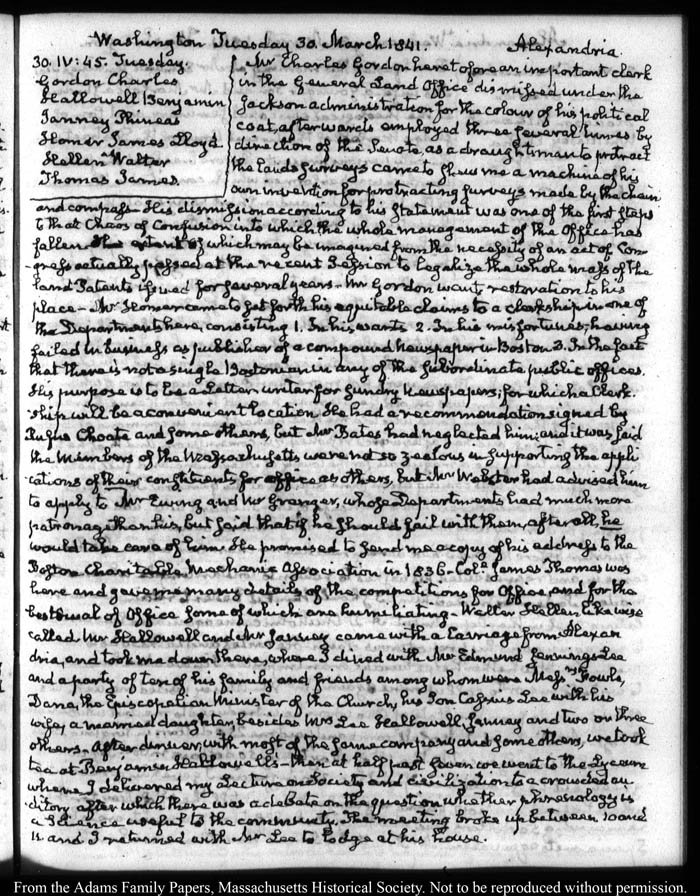 Washington Tuesday 30. March 1841. Alexandria.
30. IV: 45. Tuesday.
Gordon Charles
Hallowell Benjamin
Janney Phineas
Homer James Lloyd
Hellen Walter
Thomas James.
Mr Charles Gordon heretofore an important clerk
in the General Land Office dismissed under the
Jackson administration for the colour of his political
coat, afterwards employed three several times by
direction of the Senate, as a draughtsman to protract
the lands surveys came to shew me a machine of his
own invention for protracting surveys made by the chain
and compass. His dismission according to his statement was one of the first steps
to that Chaos of Confusion into which the whole management of the Office has
fallen. The extent of which may be imagined from the necessity of an act of Con-
gress actually passed at the recent Session to legalize the whole mass of the
Land Patents issued for several years. Mr Gordon wants restoration to his
place — Mr Homer came to set forth his equitable claims to a clerkship in one of
the Departments here, consisting 1. In his wants 2. In his misfortunes; having
failed in business as publisher of a compound Newspaper in Boston 3. In the fact
that there is not a single Bostonian in any of the subordinate public offices.
His purpose is to be a Letter writer for sundry Newspapers; for which a Clerk-
ship will be a convenient location. He had a recommendation signed by
Rufus Choate and some others, but Mr Bates had neglected him; and it was said
the Members of the Massachusetts were not so zealous in supporting the appli-
cations of their constituents for office as others, but Mr Webster had advised him
to apply to Mr Ewing and Mr Granger, whose Departments had much more
patronage than his, but said that if he should fail with them, after all, he
would take care of him. He promised to send me a copy of his address to the
Boston Charitable Mechanic Association in 1836. Col. James Thomas was
here and gave me many details of the competitions for Office, and for the
bestowal of Office some of which are humiliating. Walter Hellen likewise
called. Mr Hallowell and Mr Janney came with a Carriage from Alexan
dria, and took me down there, where I dined with Mr Edmund Jennings Lee
and a party of ten of his family and friends among whom were Messrs Fowle,
Dana, the Episcopalian Minister of the Church, his Son Cassius Lee with his
wife, a married daughter, besides Mrs Lee Hallowell, Janney and two or three
others. After dinner, with most of the same company and some others, we took
tea at Benjamin Hallowell's — then at half past seven we went to the Lyceum
where I delivered my Lecture on Society and civilization to a crowded au
ditory after which there was a debate on the question whether phrenology is
a Science useful to the community. The meeting broke up between 10 and
11 and I returned with Mr Lee to lodge at his house.
From the Adams Family Papers, Massachusetts Historical Society. Not to be reproduced without permission.